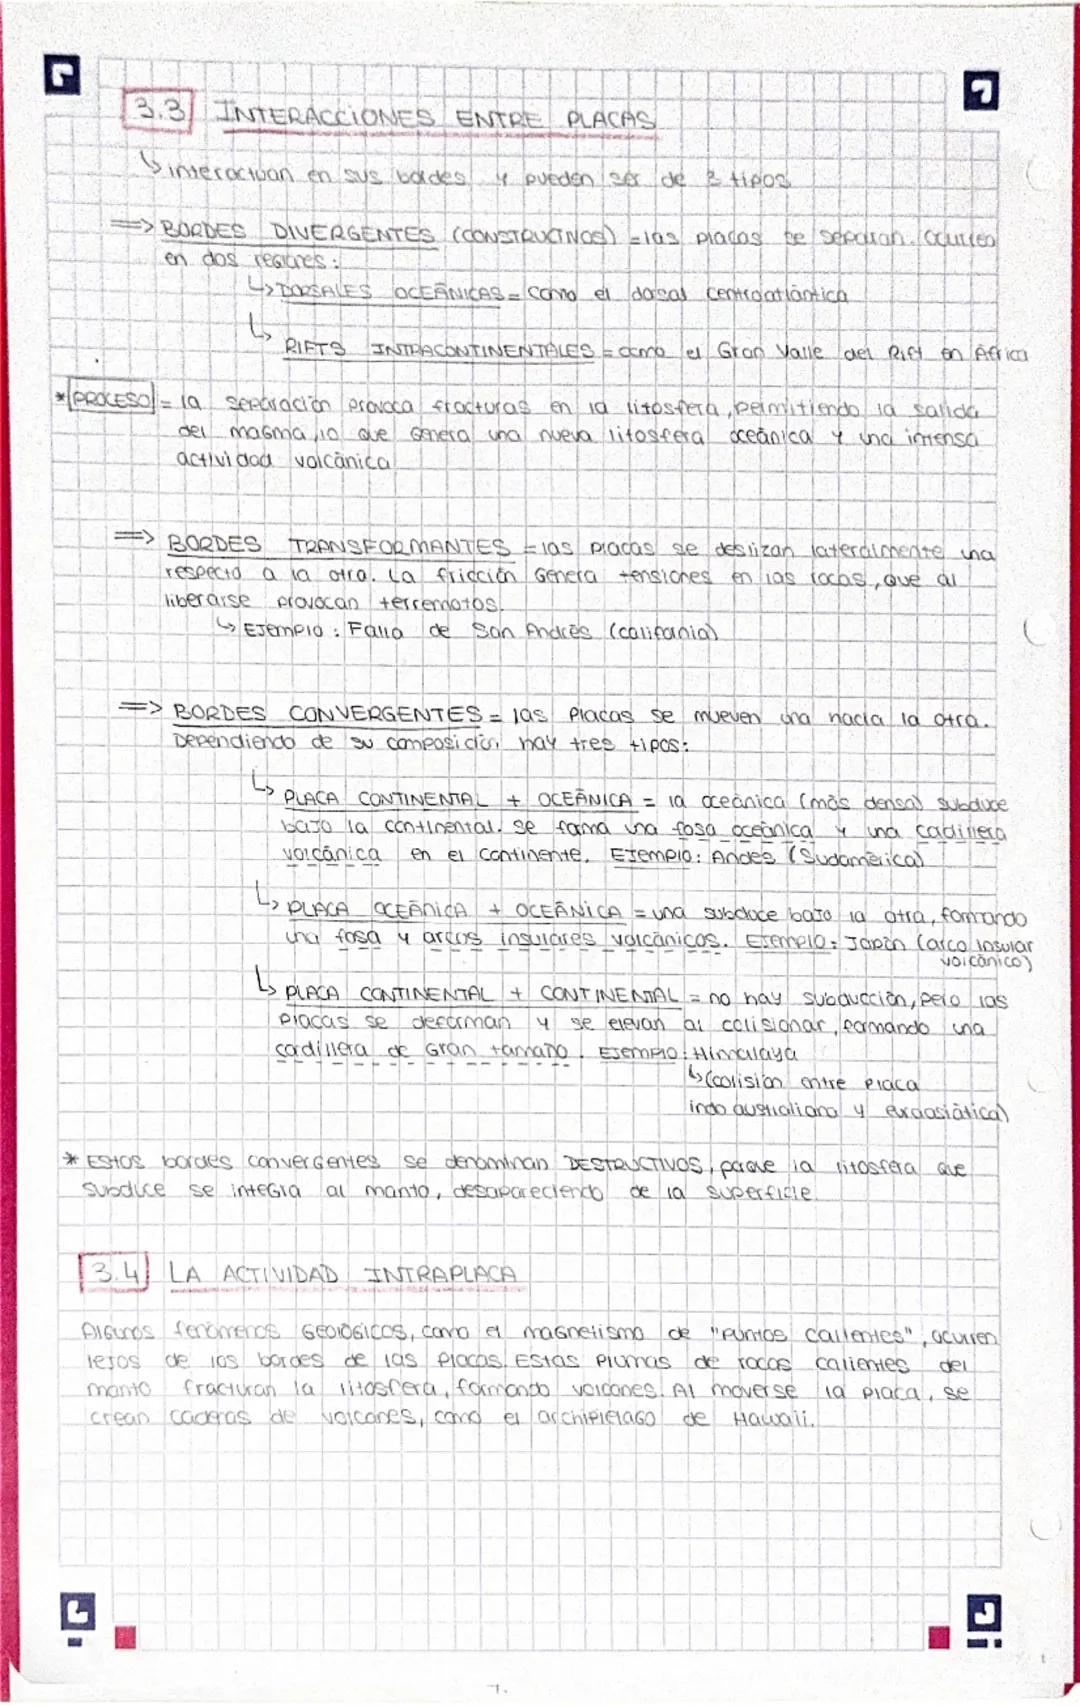 3.3 INTERACCIONES ENTRE PLACAS
↳ interactúan en sus bordes y pueden ser de 3 tipos
=> BORDES DIVERGENTES (CONSTRUCTIVOS) = las placas se separan. Ocurren
en dos regiones:
↳ DORSALES OCEÁNICAS = como el dorsal centroatlántica
↳ RIFTS INTRACONTINENTALES = como el Gran Valle del Rift en África
* PROCESO = la separación provoca fracturas en la litosfera, permitiendo la salida
del magma, lo que genera una nueva litosfera oceánica y una intensa
actividad volcánica
=> BORDES TRANSFORMANTES = las placas se deslizan lateralmente una
respecto a la otra. La fricción genera tensiones en las rocas, que al
liberarse provocan terremotos.
↳ Ejemplo: Falla de San Andrés (California)
=> BORDES CONVERGENTES = las placas se mueven una hacia la otra.
Dependiendo de su composición hay tres tipos:
↳ PLACA CONTINENTAL + OCEÁNICA = la oceánica (más densa) subduce
bajo la continental. Se forma una fosa oceánica y una cordillera
volcánica en el continente. Ejemplo: Andes (Sudamérica)
↳ PLACA OCEÁNICA + OCEÁNICA = una subduce bajo la otra, formando
una fosa y arcos insulares volcánicos. Ejemplo: Japón (arco insular
volcánico)
↳ PLACA CONTINENTAL + CONTINENTAL = no hay subducción, pero las
placas se deforman y se elevan al colisionar, formando una
cordillera de gran tamaño. Ejemplo: Himalaya
↳ (colisión entre placa
indoaustraliana y euroasiática)
* Estos bordes convergentes se denominan DESTRUCTIVOS, porque la litosfera que
subduce se integra al manto, desapareciendo de la superficie.
3.4 LA ACTIVIDAD INTRAPLACA
Algunos fenómenos geológicos, como el magnetismo de "puntos calientes", ocurren
lejos de los bordes de las placas. Estas plumas de rocas calientes del
manto fracturan la litosfera, formando volcanes. Al moverse la placa, se
crean cadenas de volcanes, como el archipiélago de Hawaii.